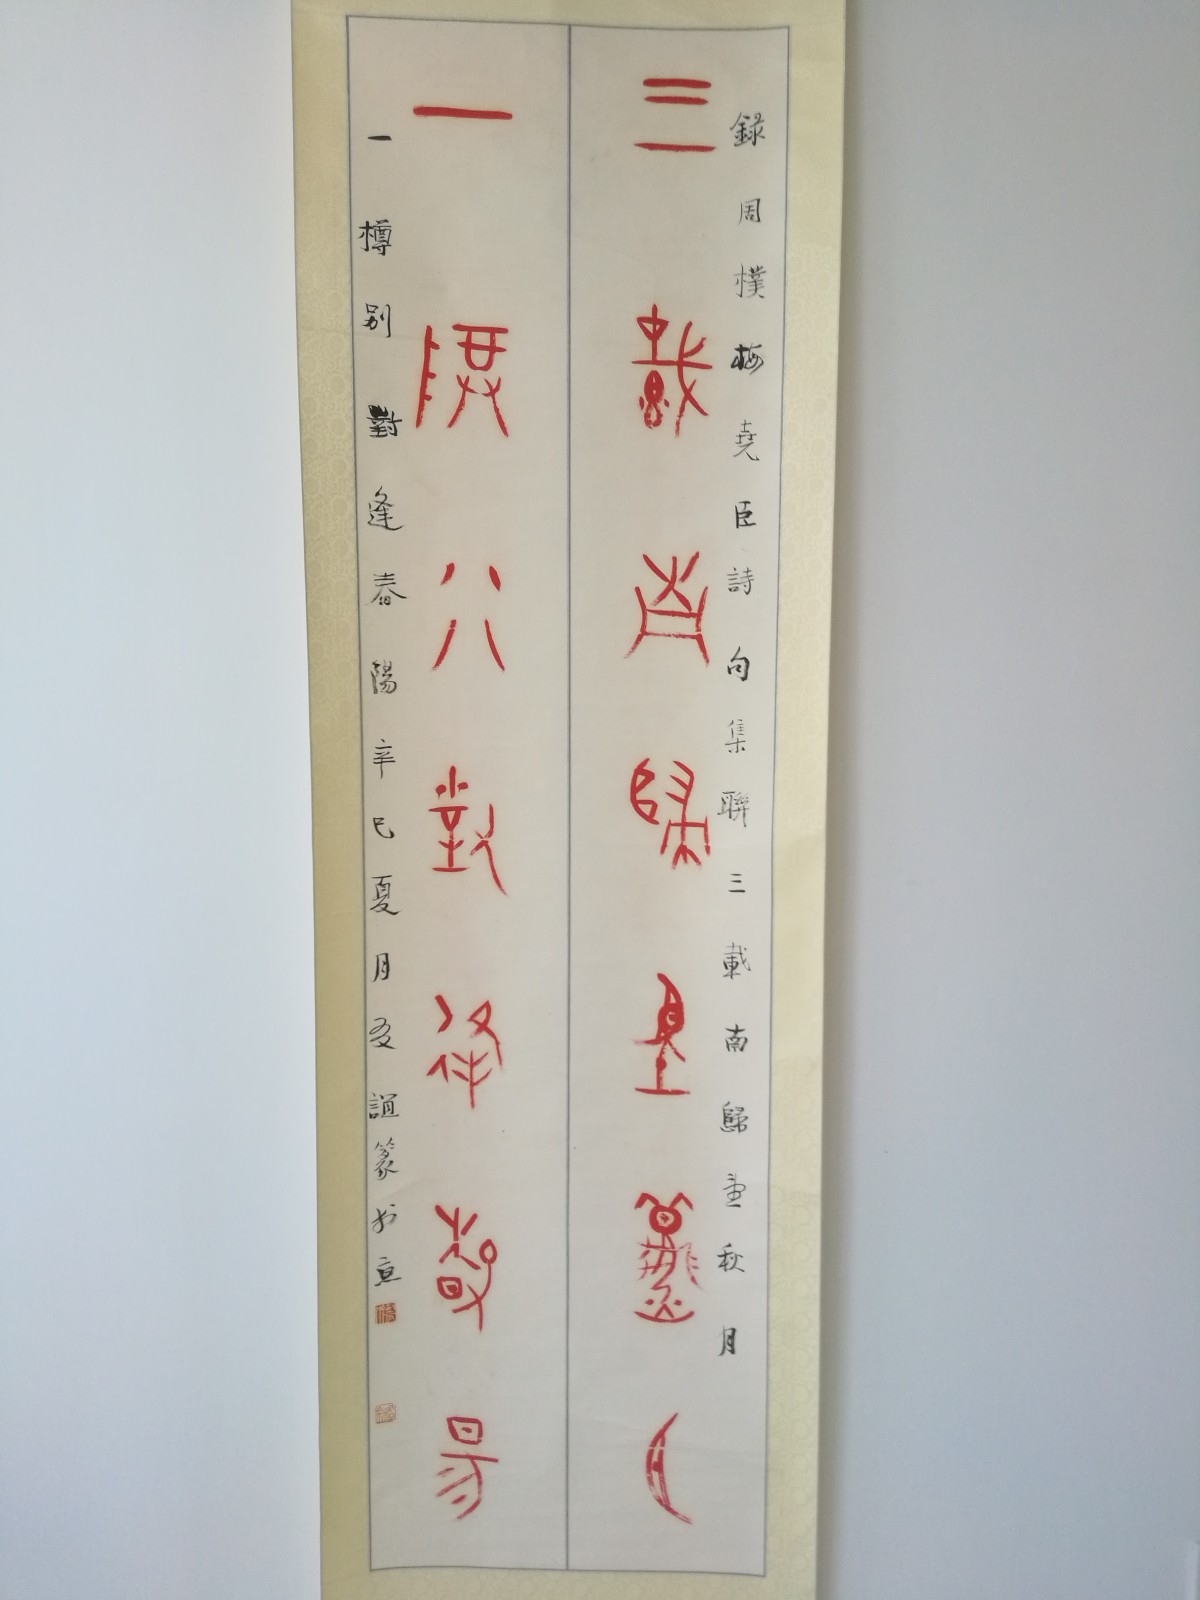 録周樸梅堯臣詩句集聯三載南歸望秋月
三載南歸望秋月
一樽別對逢春陽
一樽別對逢春陽辛巳夏月友誼篆於京